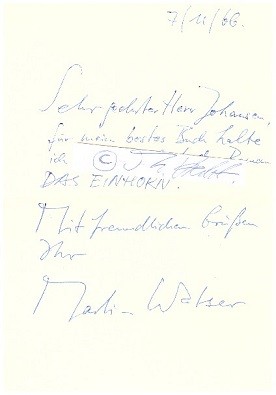 7/11/66.
Sehr geehrter Herr Johansen,
für mein bestes Buch halte
ich
DAS EINHORN.
Mit freundlichen Grüßen
Ihr
Martin Walser